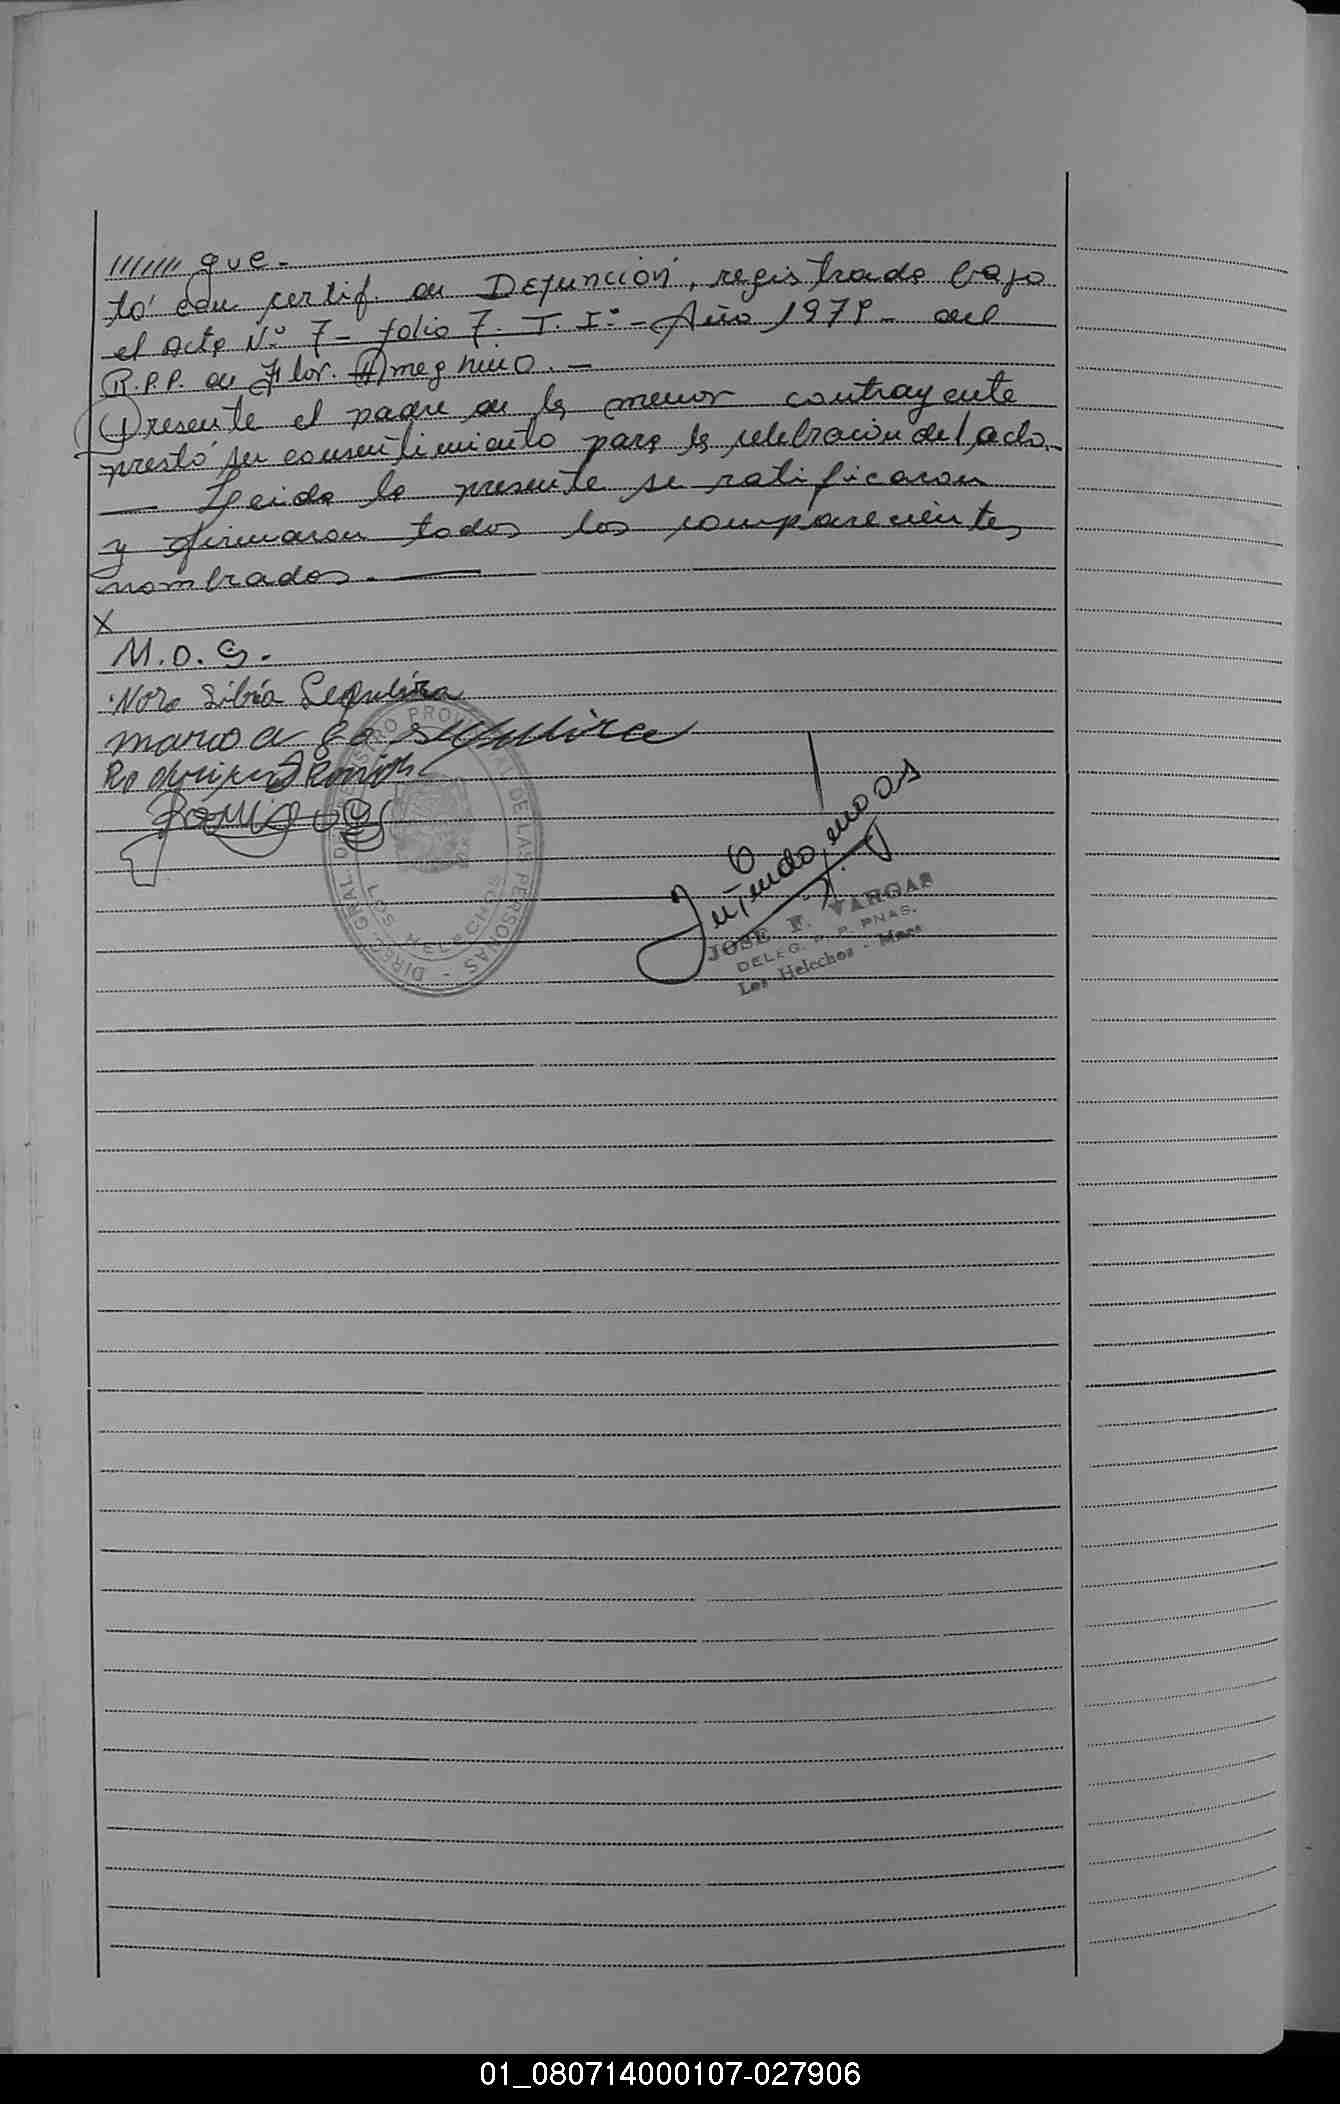 ////// que.-
tó con certif. de Defunción, registrada bajo
el acta Nº 7- folio 7. T. Iº - Año 1979- del
R.P.P. de Flor. Ameghino.-
Presente el padre de la menor contrayente
prestó su consentimiento para la celebración del acto.-
— Leida la presente se ratificaron
y firmaron todos los comparecientes
nombrados. —
X
M.O.S.
Nora Libia Sequeira
DIREC. GRAL. DEL REGISTRO PROVINCIAL DE LAS PERSONAS
LOS HELECHOS
JOSE F. VARGAS
DELEG. R. P. PNAS.
Los Helechos - Mnes
01_080714000107-027906